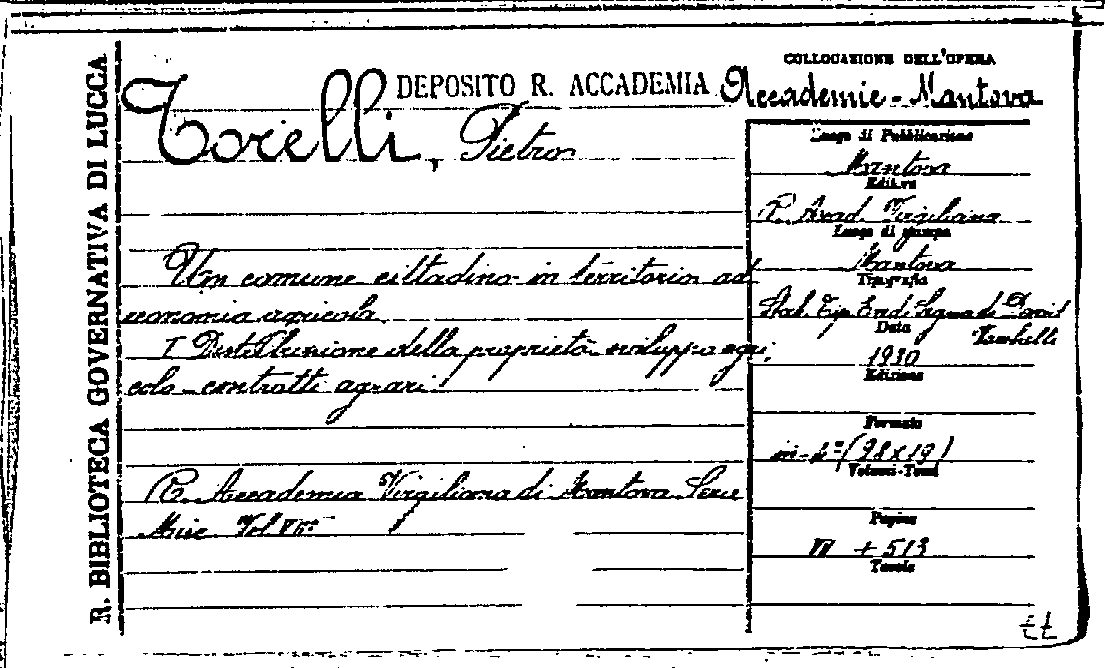 R. BIBLIOTECA GOVERNATIVA DI LUCCA
DEPOSITO R. ACCADEMIA
COLLOCAZIONE DELL'OPERA
Accademie - Mantova
Torelli, Pietro
Luogo di Pubblicazione
Mantova
Editore
R. Accad. Virgiliana
Luogo di stampa
Mantova
Tipografia
Stab. Tip. Eredi Segna di
Data
1930
Edizione
Formato
in-8º (28x19)
Volumi-Tomi
Pagine
VI + 513
Tavole
Un comune cittadino in territorio ad
economia agricola
I Distribuzione della proprietà sviluppo agri,
colo - contratti agrari
R. Accademia Virgiliana di Mantova Serie
Misc Vol VIIº